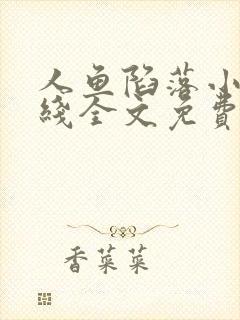 人鱼陷落小
线全文免費
香菜菜